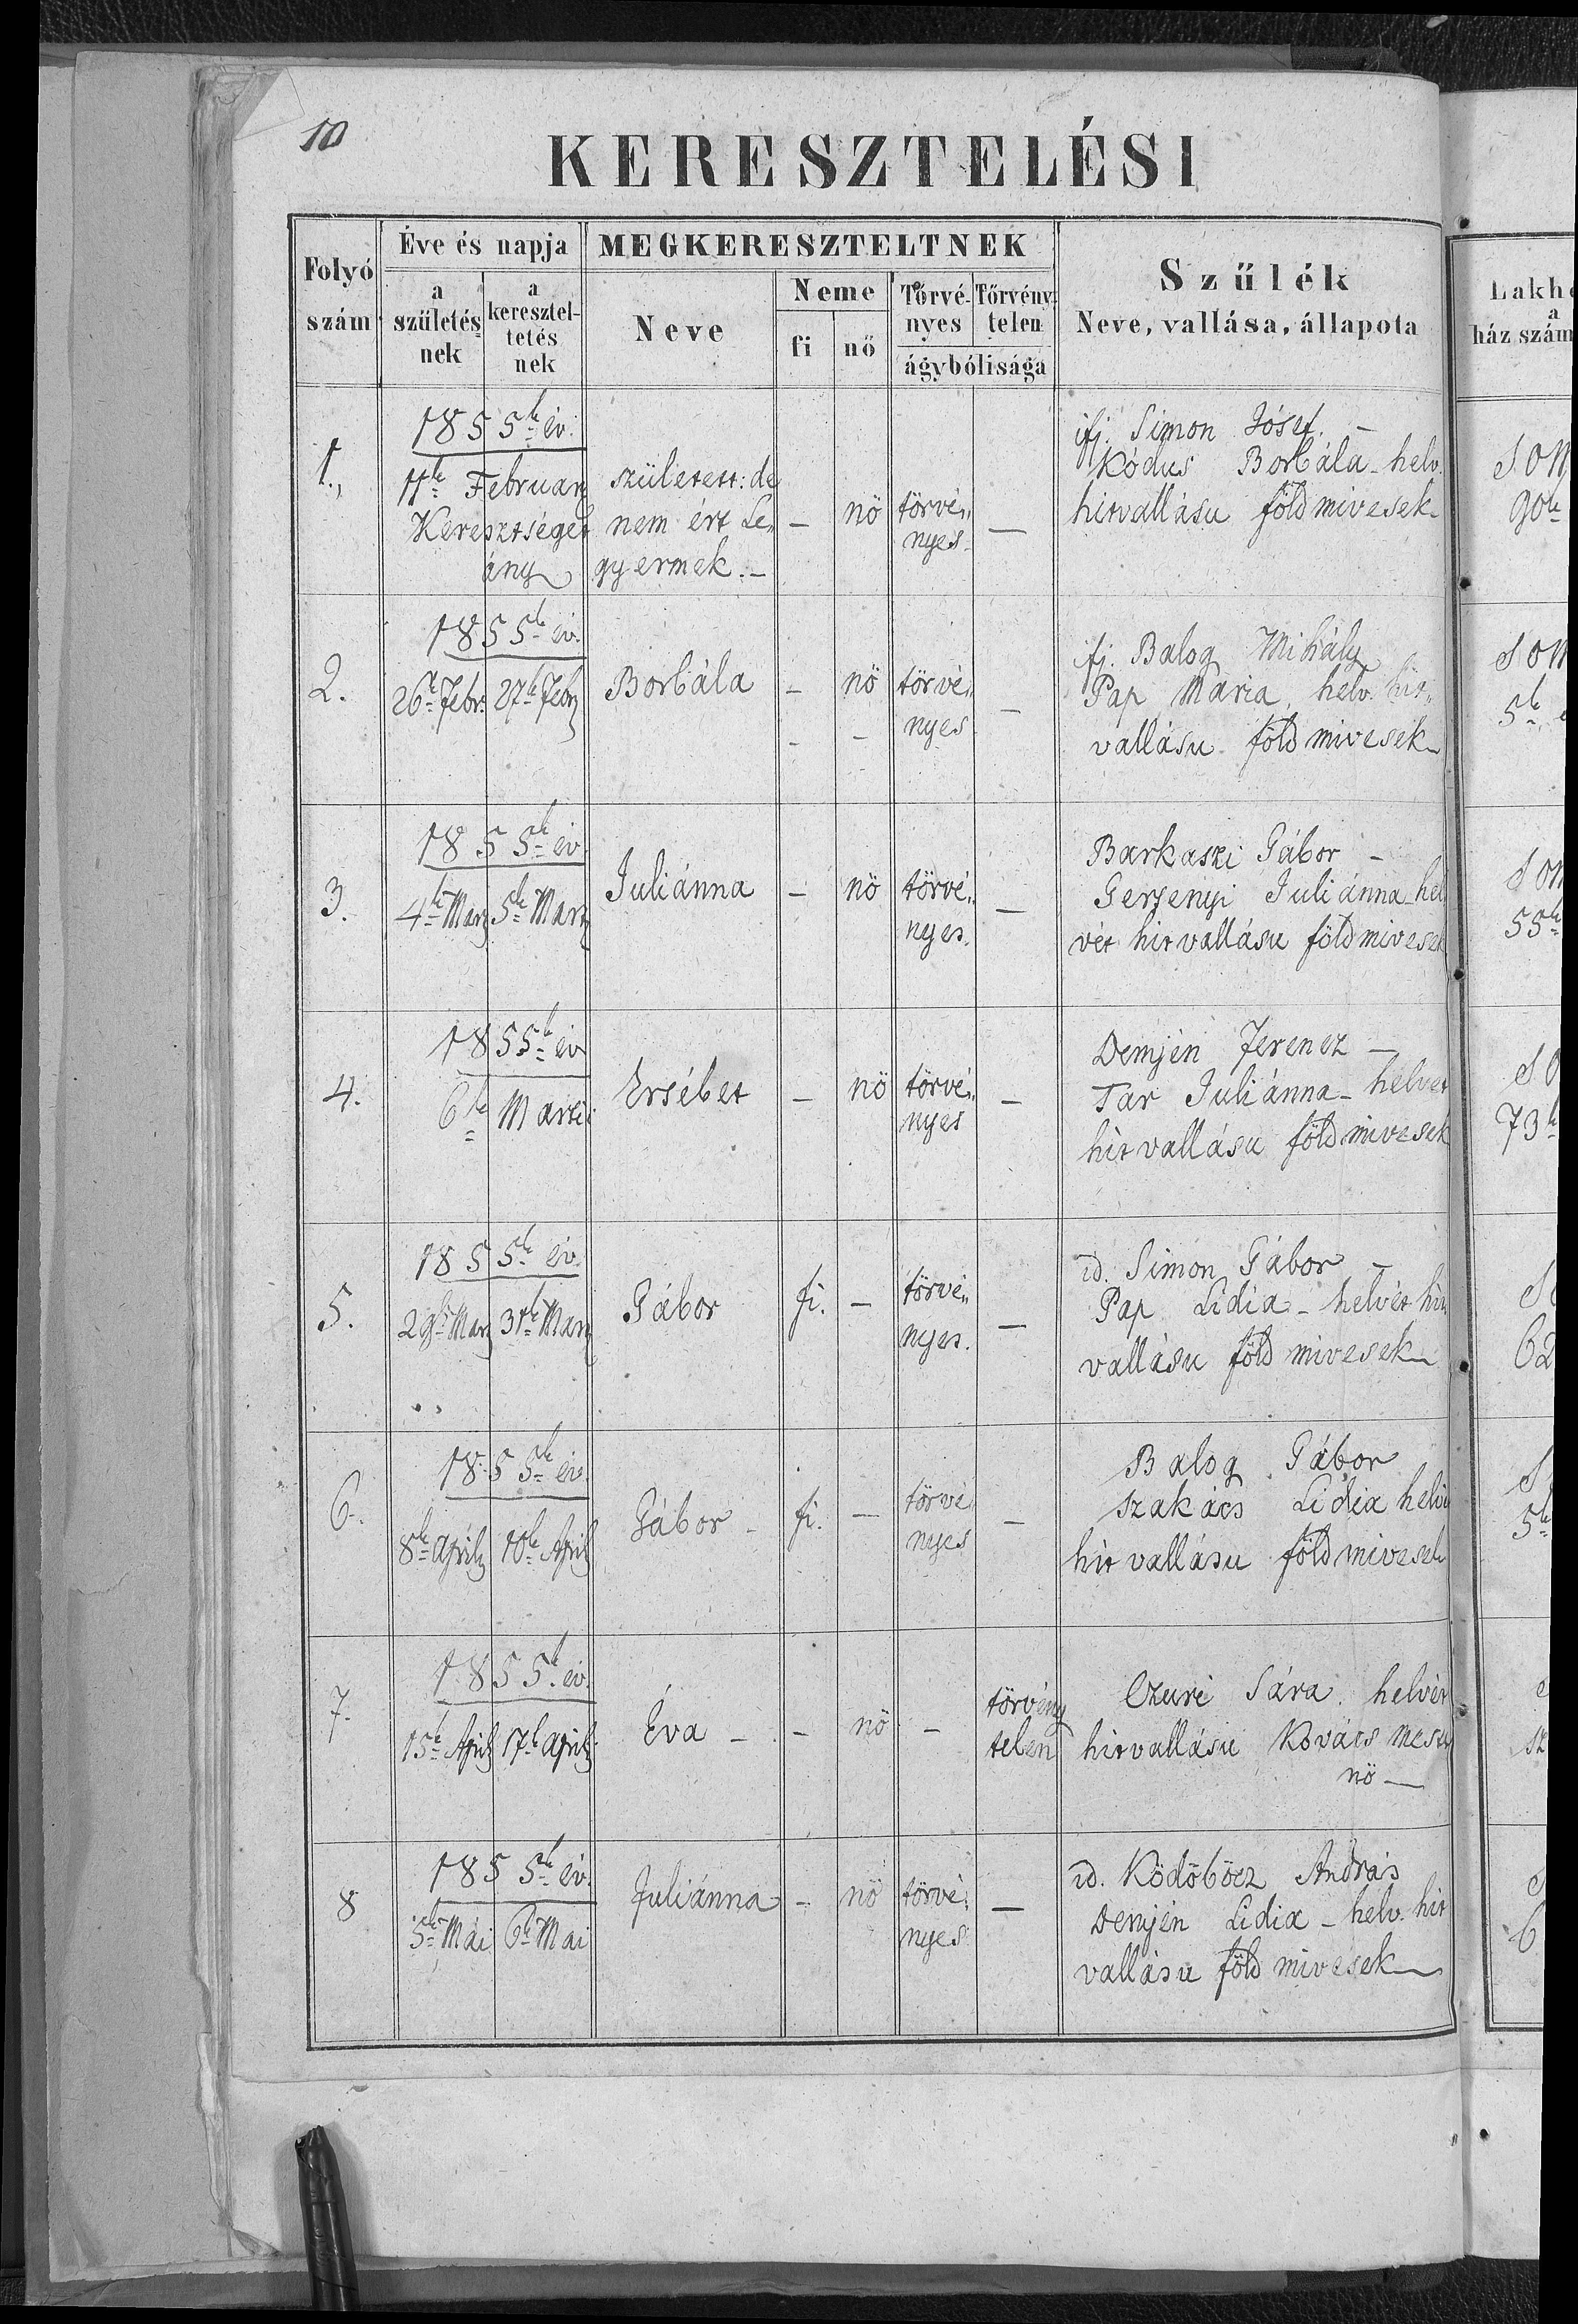 10
KERESZTELÉSI
Folyó szám
Éve és napja
a születés nek
a keresztel- tetés nek
MEGKERESZTELTNEK
Neve
Neme
fi
nő
Törvé- nyes
Törvény- telen
ágybólisága
Szűlék
Neve, vallása, állapota
Lakhe
a
ház szám
1.,
1855k év.
11k Februar
Keresztséget
ány
született: de
nem ért Le„
gyermek. –
–
nö
törvé„
nyes –
–
ifj. Simon Jósef. –
Kódus Borbála – helv.
hitvallásu földmivesek
SOM
90k
2.
1855k év.
26k Febr.
27k Febr
Borbála
–
nö
törvé„
nyes
–
ifj. Balog Mihály
Pap Mária, helv. hit„
vallásu földmivesek
SOM
5k
3.
1855k év.
4k Marz
5k Marz
Juliánna
–
nö
törvé„
nyes.
–
Barkaszi Gábor –
Gersenyi Juliánna – hel
vét hitvallásu földmivesek
SOM
55k
4.
1855k év
6k Martii
Ersébet
–
nö
törvé„
nyes
–
Demjén Ferencz –
Tar Juliánna – helvet
hitvallásu földmivesek
SO
73k
5.
1855k év.
29k Marz
31k Marz
Gábor
fi.
–
törvé„
nyes.
–
id. Simon Gábor –
Pap Lidia – helvét hit
vallásu földmivesek
S
62
6.
1855k év.
8k Április
10k April
Gábor –
fi.
–
törvé
nyes
–
Balog Gábor
Szakács Lidia helvé
hit vallásu földmivesek
S
5k
7.
1855k év.
15k April
17k April
Éva –
–
nö
–
törvény
telen
Czuri Sára. helvét
hitvallásu Kovács mest
nö –
sz
8
1855k év.
5k Mái
6k Mai
Juliánna
–
nö
törvé„
nyes.
–
id. Ködöböcz András
Demjén Lidia – helv. hit
vallásu földmivesek
6